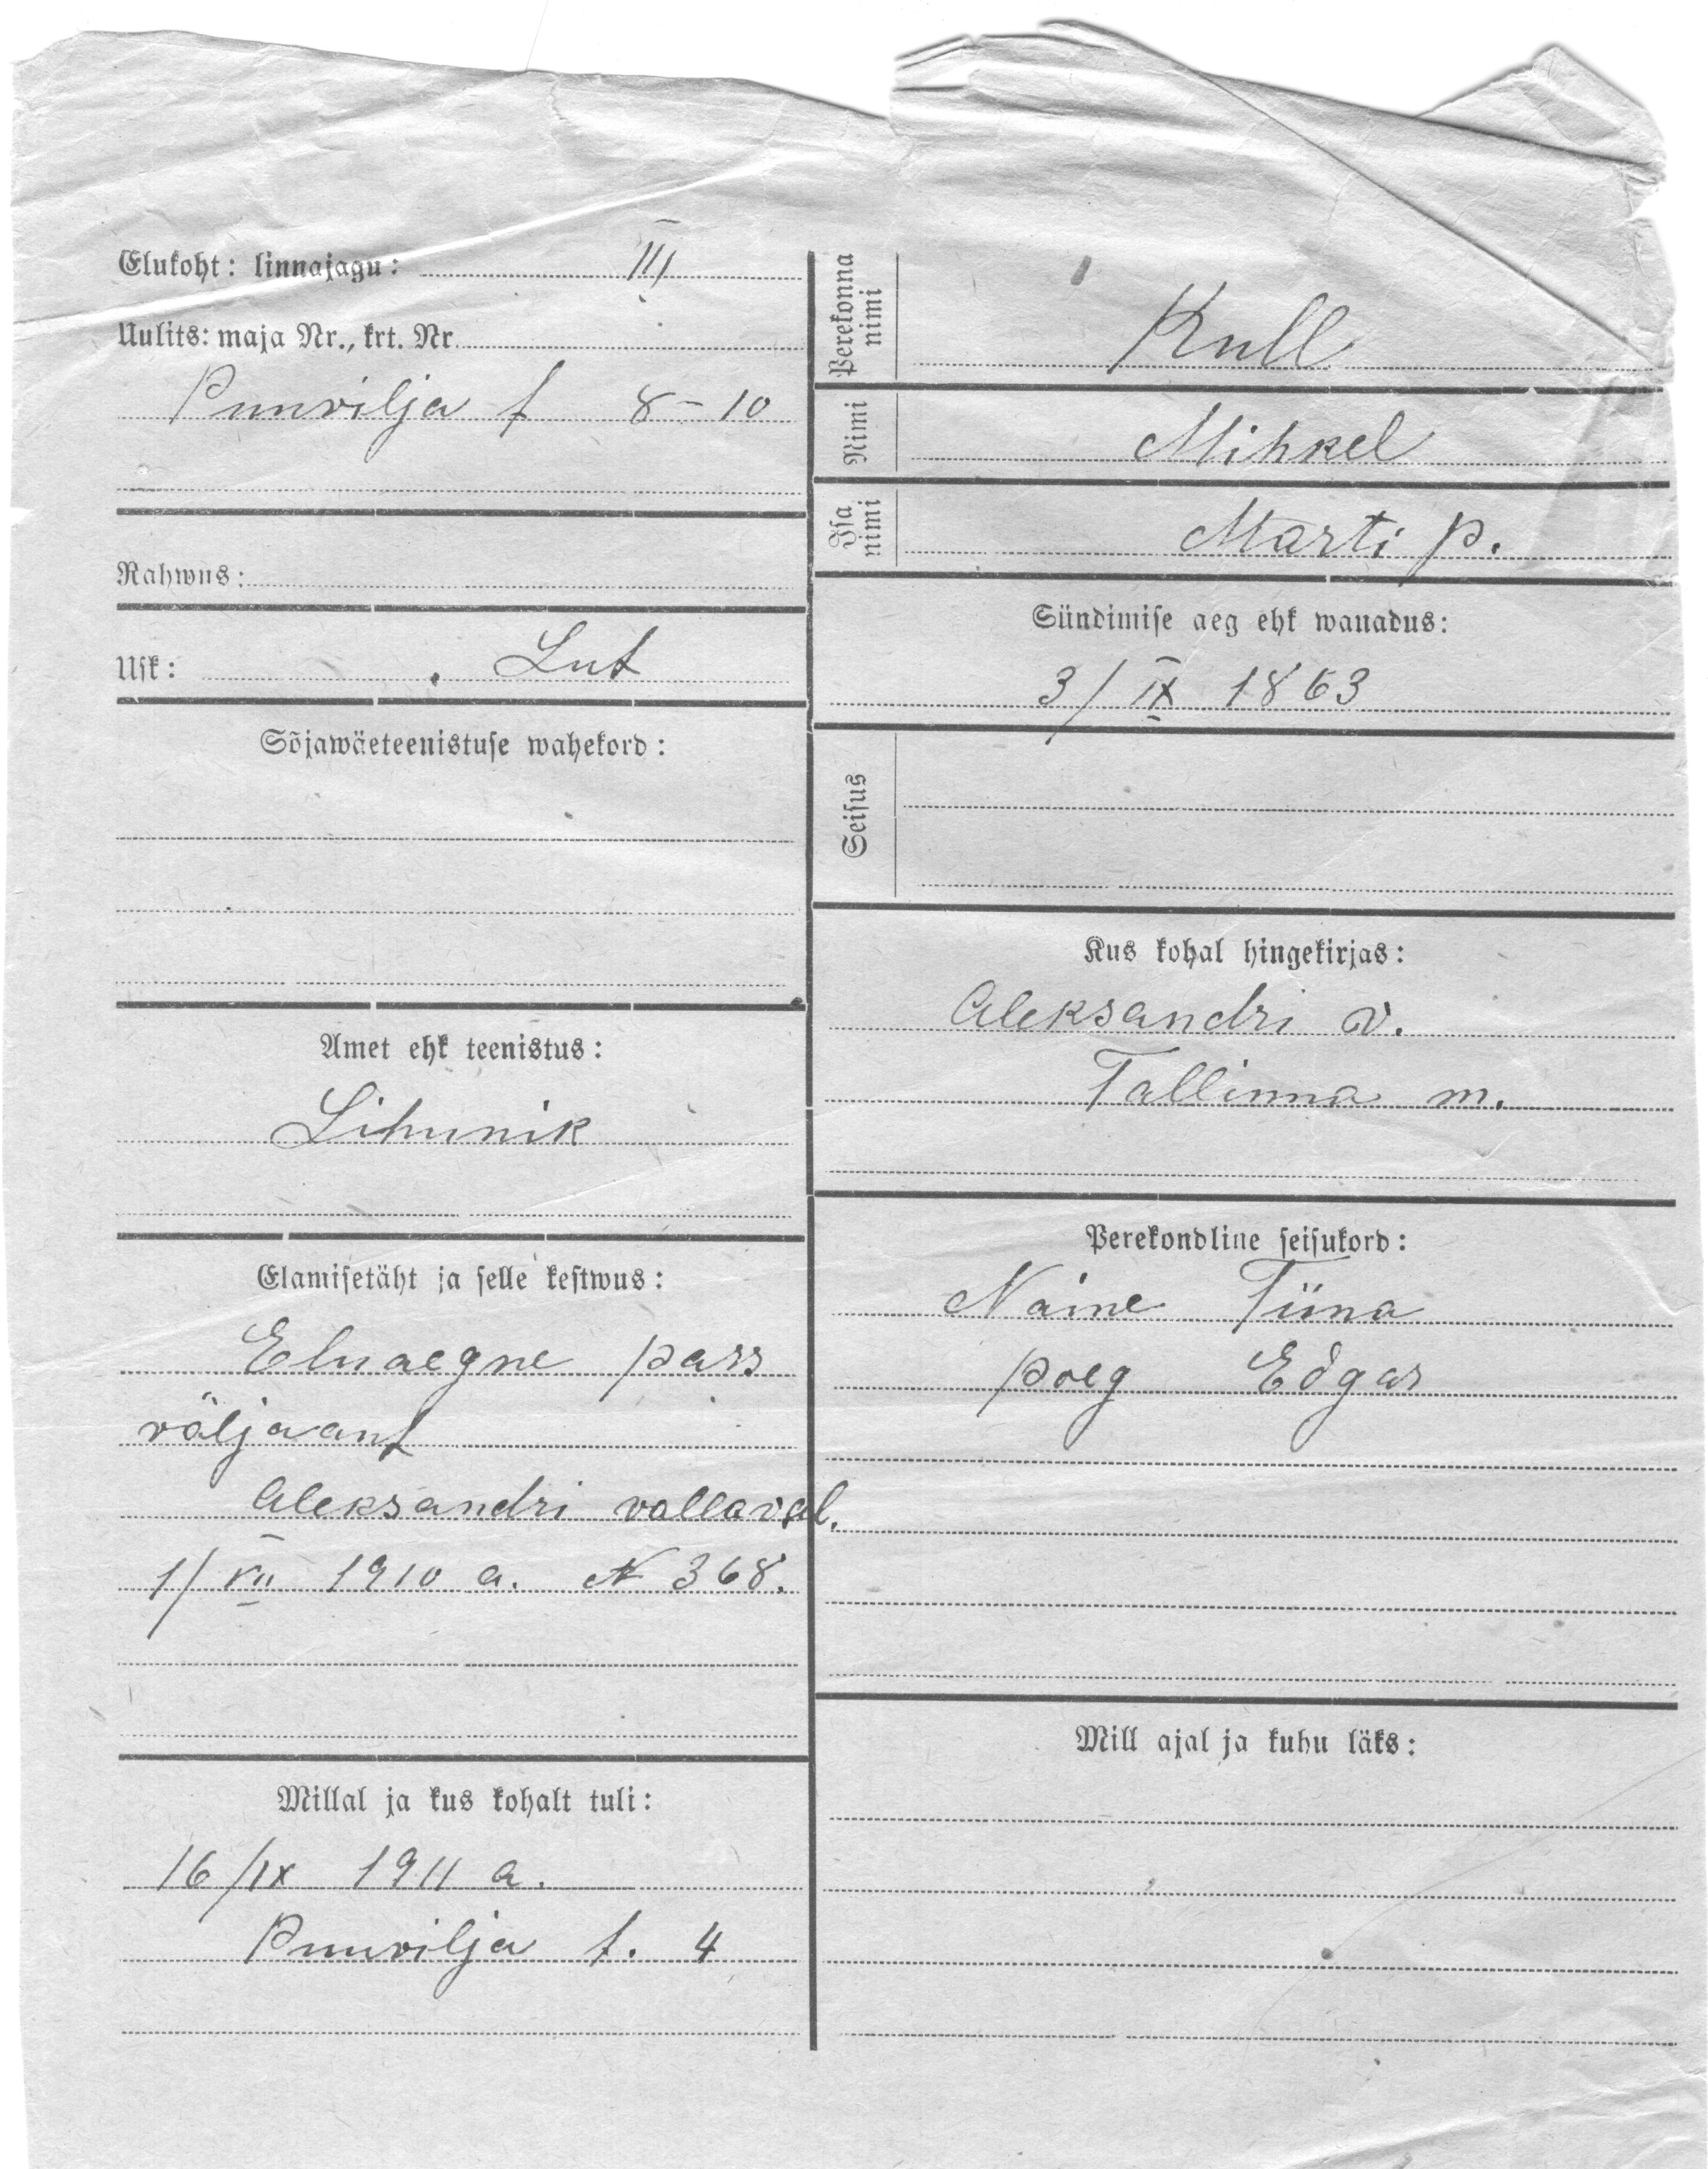 Elukoht: linnajagu: III
Uulits: maja Nr., krt. Nr.
Puuvilja t 8-10
Rahwus:
Usk: Lut
Sõjawäeteenistuse wahekord:
Amet ehk teenistus:
Lihunik
Elamisetäht ja selle kestwus:
Eluaegne pass
väljaant
Aleksandri vallaval.
1/VII 1910 a. N 368.
Millal ja kus kohalt tuli:
16/IX 1911 a.
Puuvilja t. 4
Perekonna nimi
Kull
Nimi
Mihkel
Isa nimi
Marti p.
Sündimise aeg ehk wanadus:
3/IX 1863
Seisus
Kus kohal hingekirjas:
Aleksandri v.
Tallinna m.
Perekondline seisukord:
Naine Tiina
poeg Edgar
Mill ajal ja kuhu läks: